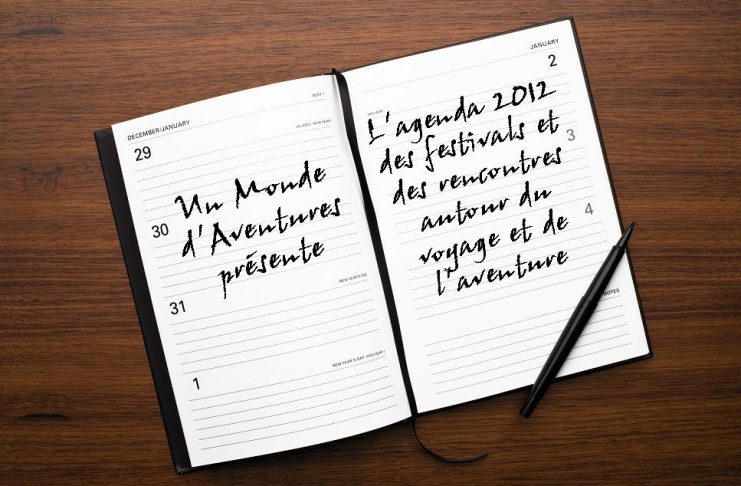 DECEMBER/JANUARY
29
Un Monde
30
d'Aventures
présente
NEW YEAR'S EVE
31
NEW YEAR'S DAY (HOLIDAY)
1
JANUARY
2
L'agenda 2012
des festivals et
3
des rencontres
autour du
4
voyage et de
l'aventure
NOTES